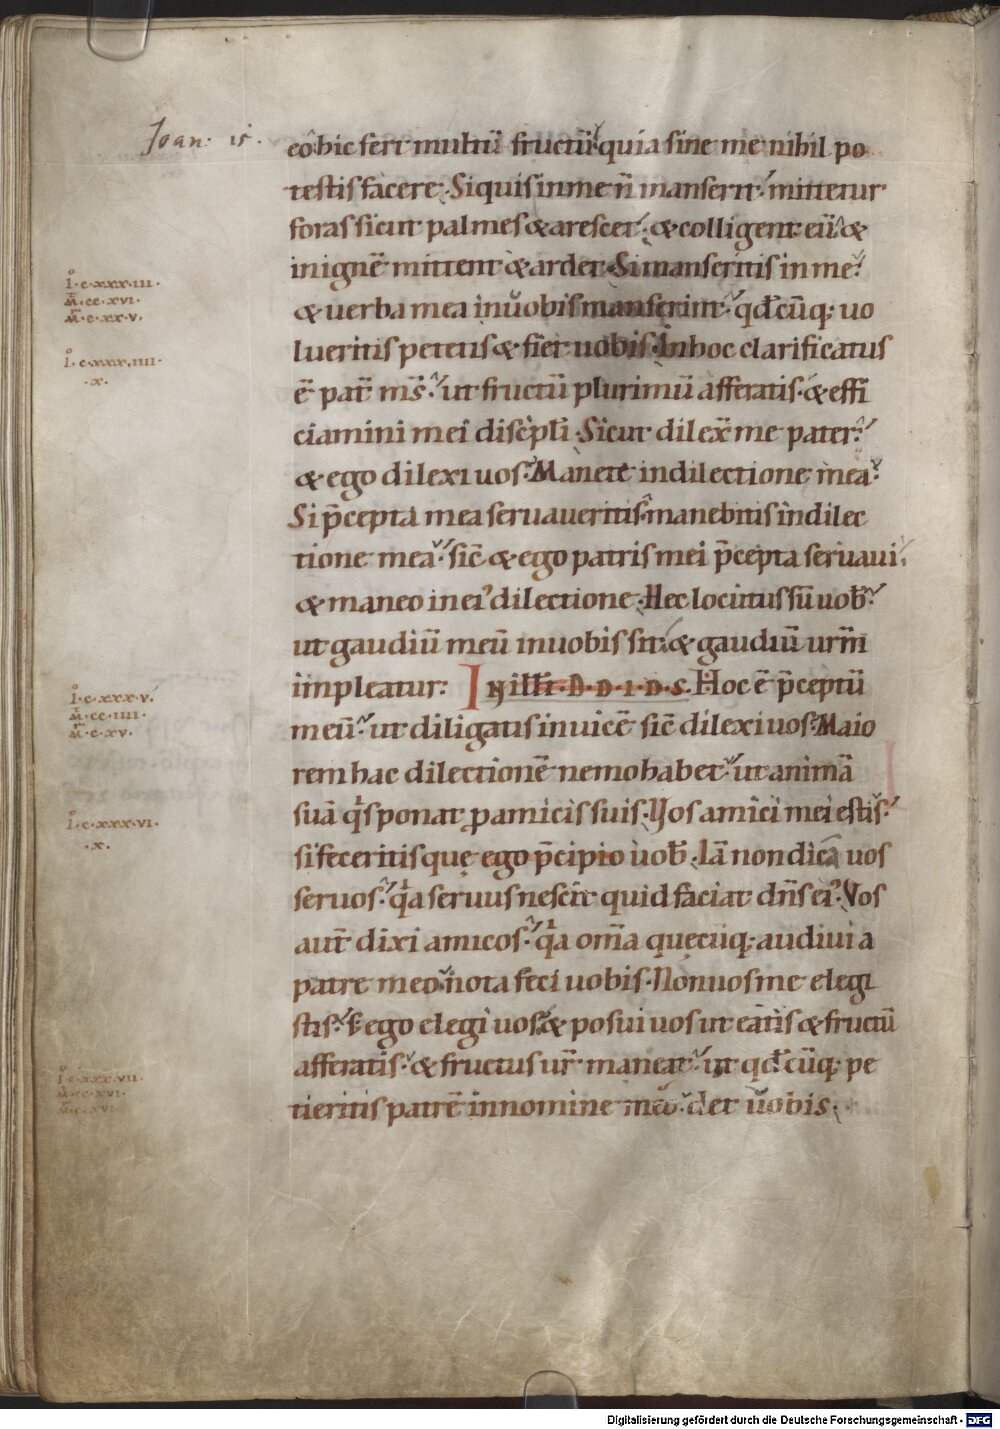 Joan: 15.
eo hic fert multū fructū. quia sine me nihil po
testis facere. Si quis in me n̄ manserit. mittetur
foras sicut palmes & arescet. & colligent eū &
in ignē mittent & ardet. Si manseritis in me.
& uerba mea in uobis manserint. qđcūq; uo
lueritis petetis & fiet uobis. In hoc clarificatus
ē pat̄ ms̄. ut fructū plurimū afferatis. & effi
ciamini mei discipłi. Sicut dilex̄ me pater.
& ego dilexi uos. Manete in dilectione mea.
Si p̄cepta mea seruaueritis. manebitis in dilec
tione mea. sic̄ & ego patris mei p̄cepta seruaui.
& maneo in ei' dilectione. Hec locutus sū uob̄.
ut gaudiū meū in uobis sit. & gaudiū urm̄
impleatur. IN illī. D. D. I. D. S. Hoc ē p̄ceptū
meū. ut diligatis inuicē sic̄ dilexi uos. Maio
rem hac dilectionē nemo habet. ut animā
suā qis ponat ꝑ amicis suis. Vos amici mei estis.
si feceritis quę ego p̄cipio uob̄. Iā non dicā uos
seruos. qia seruus nescit quid faciat dn̄s ei'. Vos
aut̄ dixi amicos. qia om̄a quęcūq; audiui a
patre meo nota feci uobis. Non uos me elegi
stis. s; ego elegi uos. & posui uos ut eatis & fructū
afferatis. & fructus ur̄ maneat. ut qđcūq; pe
tieritis patrē in nomine meo. det uobis.
I. c. xxx. iii.
M. cc. xvi.
M. c. xx. v.
I. c. xxx. iiii.
. x.
I. c. xxx. v.
M. cc. iiii.
M. c. xv.
I. c. xxx. vi.
. x.
I. c. xxx. vii.
M. cc. xvi.
M. c. xvi.
Digitalisierung gefördert durch die Deutsche Forschungsgemeinschaft - DFG